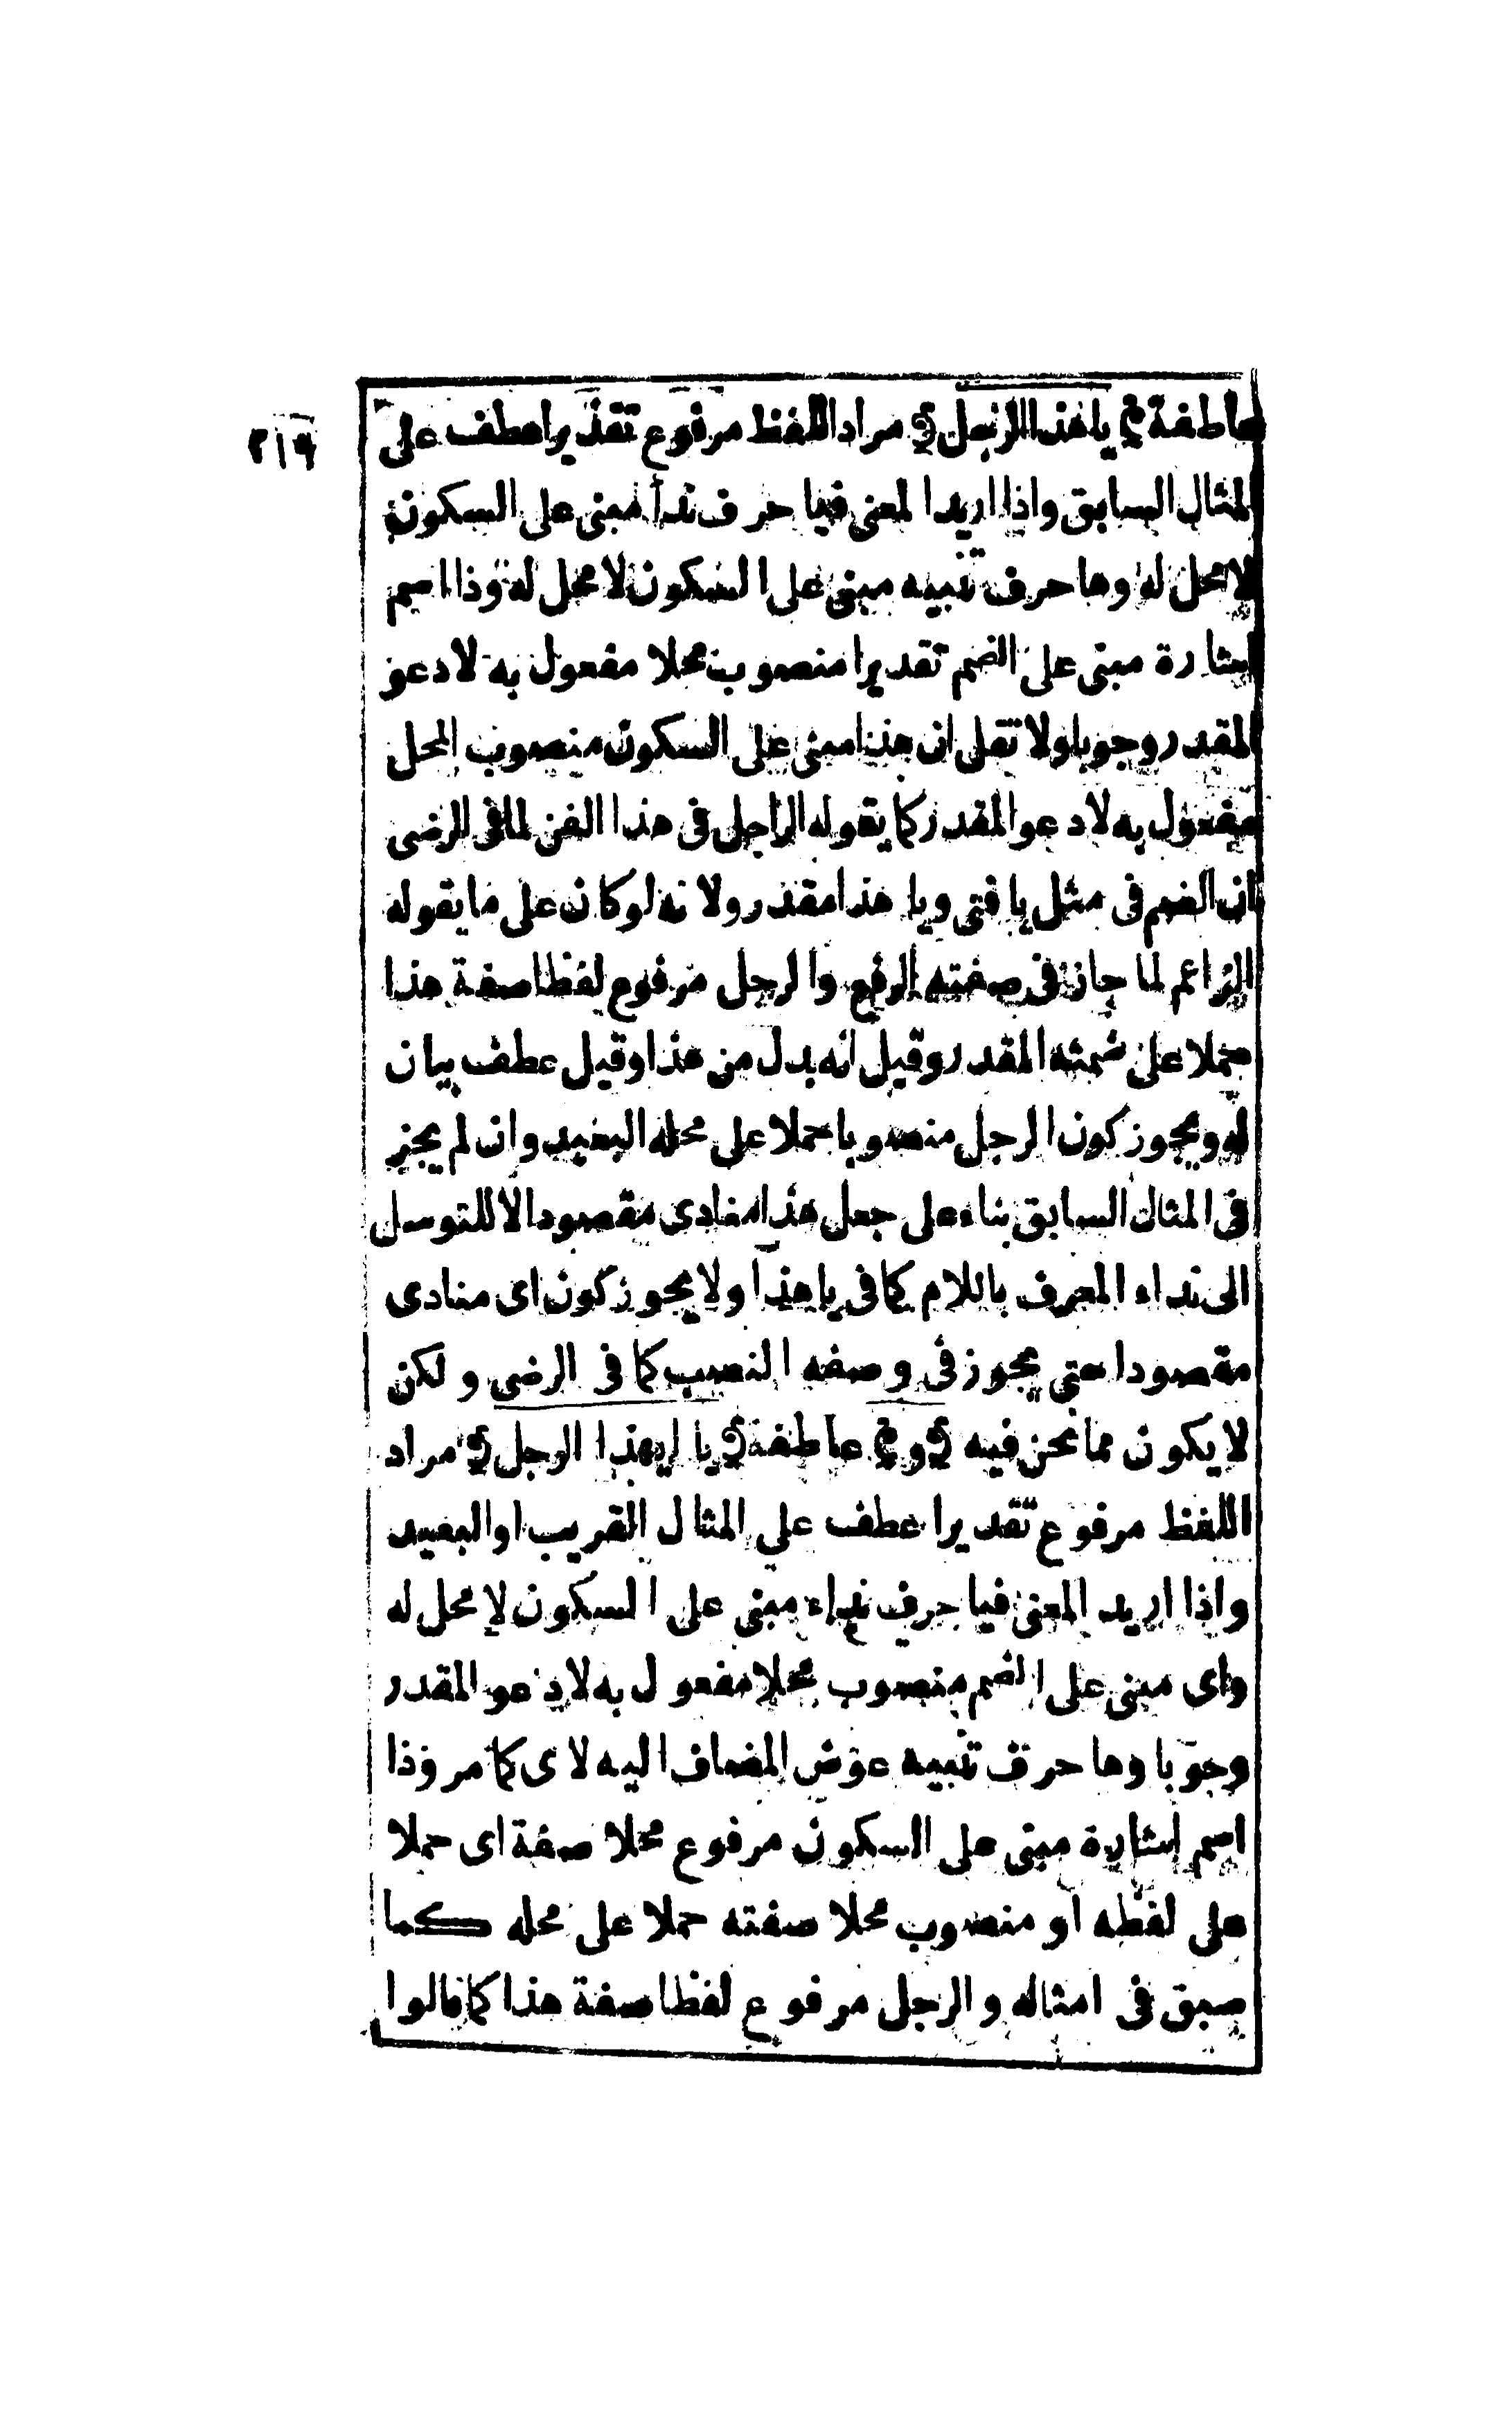 عاطفة ﴿ يا هذا الرجل ﴾ مراد اللفظ مرفوع تقديرا عطف على
٢١٩
المثال السابق واذا اريد المعنى فيا حرف نداء مبنى على السكون
لا محل له وها حرف تنبيه مبنى على السكون لا محل له وذا اسم
اشارة مبنى على الضم تقديرا منصوب محلا مفعول به لادعو
المقدر وجوبا ولا تقل ان هذا مبنى على السكون منصوب المحل
مفعول به لادعو المقدر كما يقوله الراجل فى هذا الفن لما فى الرضى
ان الضم فى مثل يا فتى ويا هذا مقدر ولانه لو كان على ما يقوله
الزاعم لما جاز فى صفته الرفع والرجل مرفوع لفظا صفة هذا
حملا على ضمته المقدر وقيل انه بدل من هذا وقيل عطف بيان
له ويجوز كون الرجل منصوبا حملا على محله البعيد وان لم يجز
فى المثال السابق بناء على جعل هذا منادى مقصودا لا للتوسل
الى نداء المعرف باللام كما فى يا هذا ولا يجوز كون اى منادى
مقصودا حتى يجوز فى وصفه النصب كما فى الرضى ولكن
لا يكون مما نحن فيه ﴿ و ﴾ عاطفة ﴿ يا ايهذا الرجل ﴾ مراد
اللفظ مرفوع تقديرا عطف على المثال القريب او البعيد
واذا اريد المعنى فيا حرف نداء مبنى على السكون لا محل له
واى مبنى على الضم منصوب محلا مفعول به لادعو المقدر
وجوبا وها حرف تنبيه عوض المضاف اليه لاى كما مر وذا
اسم اشارة مبنى على السكون مرفوع محلا صفة اى حملا
على لفظه او منصوب محلا صفته حملا على محله كما
سبق فى امثاله والرجل مرفوع لفظا صفة هذا كما قالوا